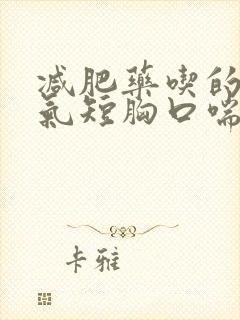 减肥藥喫的
氣短胸口喘
卡雅